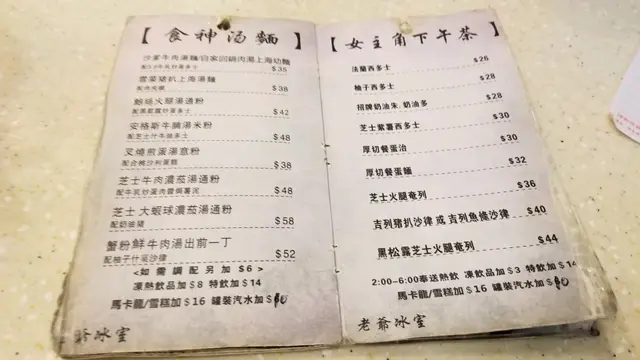 【食神汤麵】
沙爹牛肉湯麵/自家回鍋肉湯上海幼麵
$35
雪菜豬扒上海湯麵 $38
鮑絲火腿湯通粉 $42
安格斯牛腩湯米粉
配芝士什牛燒多士 $48
叉燒煎蛋湯意粉 $38
芝士牛肉濃茄湯通粉 $48
芝士大蝦球濃茄湯通粉
配奶油豬 $58
蟹粉鮮牛肉湯出前一丁
配柚子什菜沙律 $52
<如需調配另加$6>
凍熱飲品加$8 特飲加$14
馬卡龍/雪糕加$16 罐裝汽水加$10
老爺冰室
【女主角下午茶】
法蘭西多士 $26
柚子西多士 $28
招牌奶油朱.奶油多 $28
芝士紫薯西多士 $30
厚切餐蛋治 $30
厚切餐蛋麵 $32
芝士火腿奄列 $36
吉列豬扒沙律 或 吉列魚條沙律 $40
黑松露芝士火腿奄列 $44
2:00-6:00奉送熱飲 凍飲品加$3 特飲加$14
馬卡龍/雪糕加$16 罐裝汽水加$10
老爺冰室